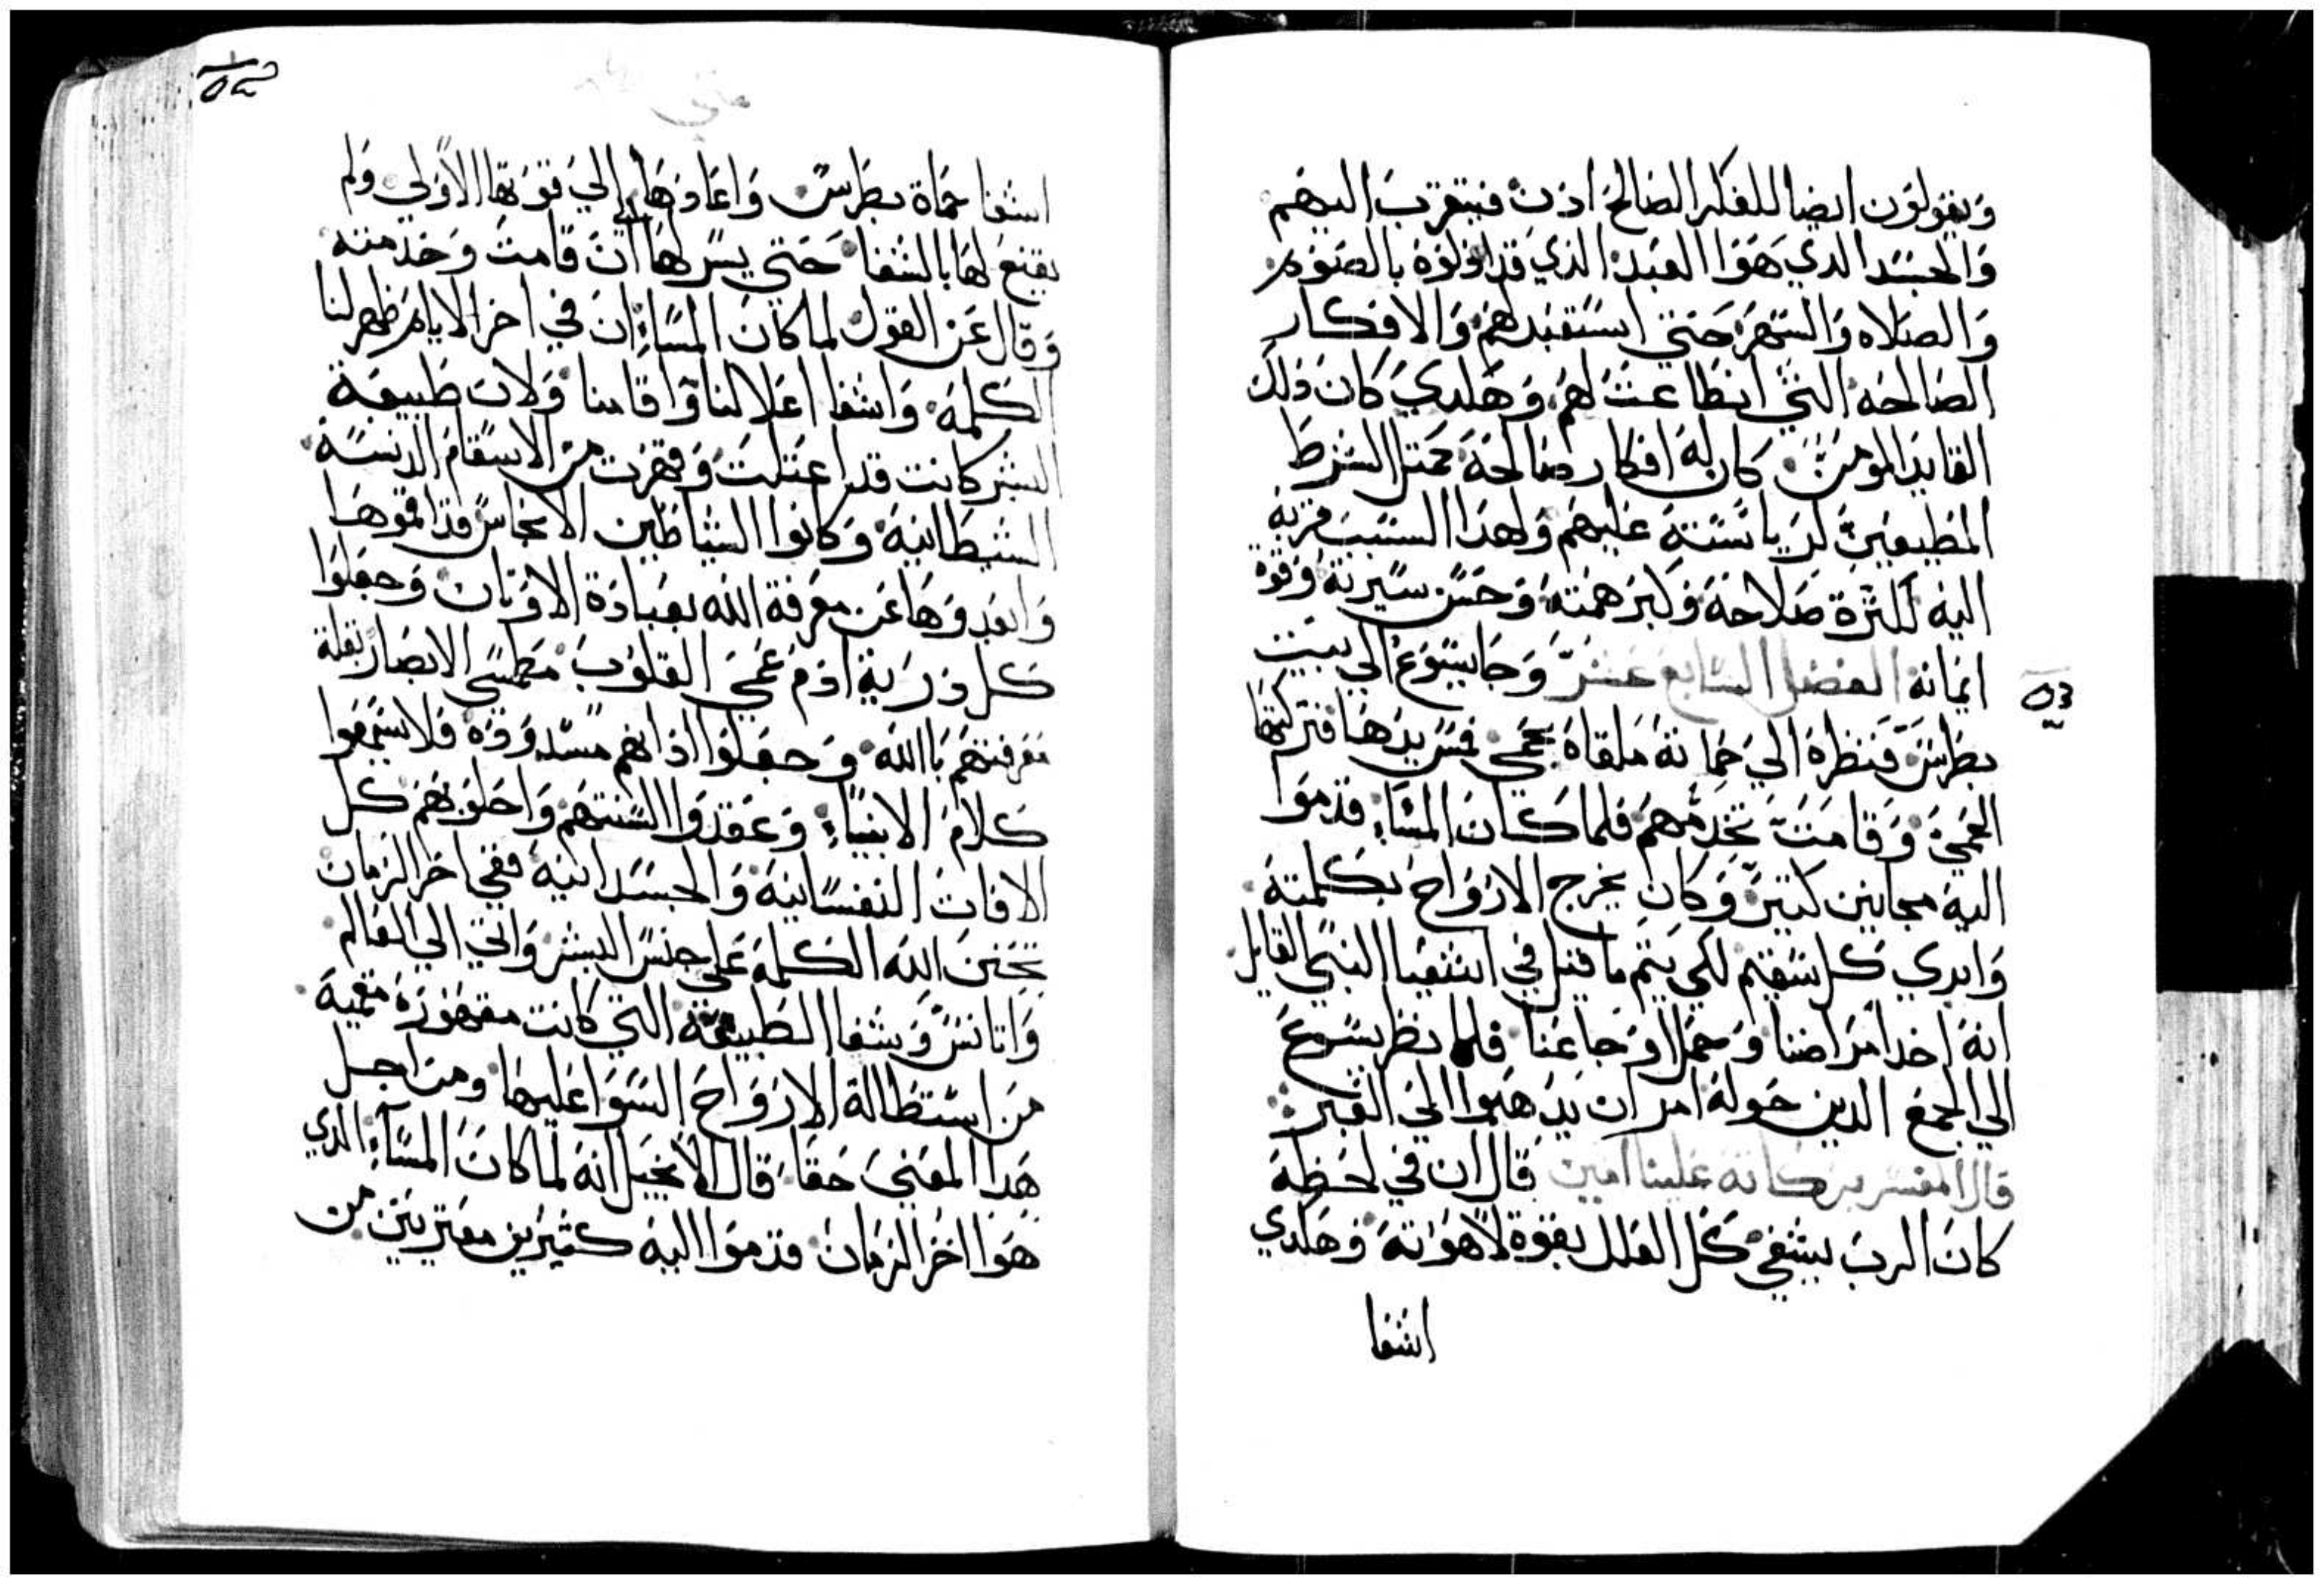 ويقولون ايضا للفكر الصالح اذن فيتقرب اليهم
والجسد الدي هوا العبد الذي قد اذلوه بالصوم
والصلاه والسهر حتي استقبد لهم والافكار
الصالحه التي انطاعت لهم وهلدي كان ذلك
القايد المومن كان له افكار صالحه محتل الشرط
المطيعين لرياسته عليهم ولهدا السبب قربه
اليه لكثرة صلاحه وكبر همته وحسن سيرته وقوة
ايمانه الفصل السابع عشر وجا يسوع الي بيت
بطرس فنظره الي حماته ملقاه بحمي فمس يدها فتركتها
الحمي وقامت تخدمهم فلما كان المساء قدموا
اليه مجانين كتير وكان يخرج الارواح بكلمته
وابري كل سقيم لكي يتم ما قيل في اشعيا النبي القايل
انه اخد امراضنا وحمل اوجاعنا فلما نظر يسوع
الي الجمع الدين حوله امر ان يدهبوا الي العبر
قال المفسر بركاته علينا امين قال ان في لحظة
كان الرب يشفي كل العلل بقوة لاهوته وهلدي
اشفا
متي
اشفا حماة بطرس واعادها الي قوتها الاولي ولم
يقنع لها بالشفا حتي يسر لها ان قامت وخدمته
وقال عن القول لما كان المساء ان في اخر الايام ظهر لنا
الكلمه واشفا اعلالنا واقامنا ولان طبيعة
البشر كانت قد اعتلت وقهرت من الاسقام الدنسة
الشيطانيه وكانوا الشياطين الانجاس قد اقموها
وابعدوها عن معرفة الله بعبادة الاوتان وجعلوا
كل درية ادم عمي القلوب مطمسي الابصار بقلة
معرفتهم باالله وجعلوا اذانهم مسدوده فلا يسمعوا
كلام الانبياء وعقدوا السنتهم واحلوا بهم كل
الافات النفسانيه والجسدانيه ففي اخر الزمان
تحنن الله الكلمه علي جنس البشر واتي الي العالم
واتانس وشفا الطبيعة التي كانت مقهوره مقميه
من استطالة الارواح السوا عليها ومن اجل
هدا المعني حقا قال الانجيل انه لما كان المساء الدي
هوا اخر الزمان قدموا اليه كثيرين معتريين من